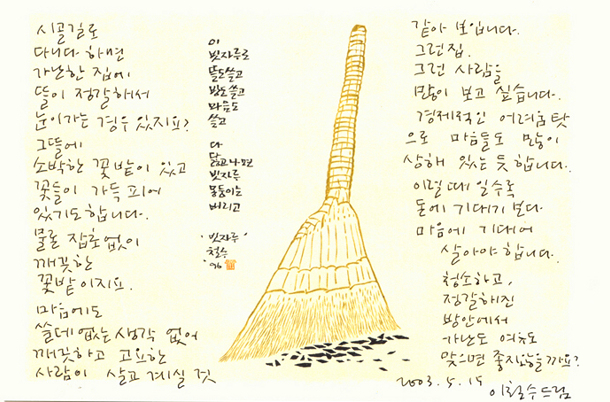 시골길로
다니다 하면
가난한 집에
뜰이 정갈해서
눈이가는 경우 있지요?
그뜰에
소박한 꽃밭이 있고
꽃들이 가득 피어
있기도합니다.
물론 잡초없이
깨끗한
꽃밭이지요.
마음에도
쓸데없는 생각 없어
깨끗하고 고요한
사람이 살고 계실 것
이
빗자루로
뜰도쓸고
방도쓸고
마음도
쓸고
다
닳고나면
빗자루
몽둥이는
버리고
'빗자루'
철수
'96
같아 보입니다.
그런집.
그런 사람을
많이 보고 싶습니다.
경제적인 어려움 탓
으로 마음들도 많이
상해 있는 듯 합니다.
이럴때 일수록
돈에 기대기 보다
마음에 기대어
살아야 합니다.
청소하고,
정갈해진
방안에서
가난도
맞으면 좋지않을까요?
2003. 5. 15
이철수드림